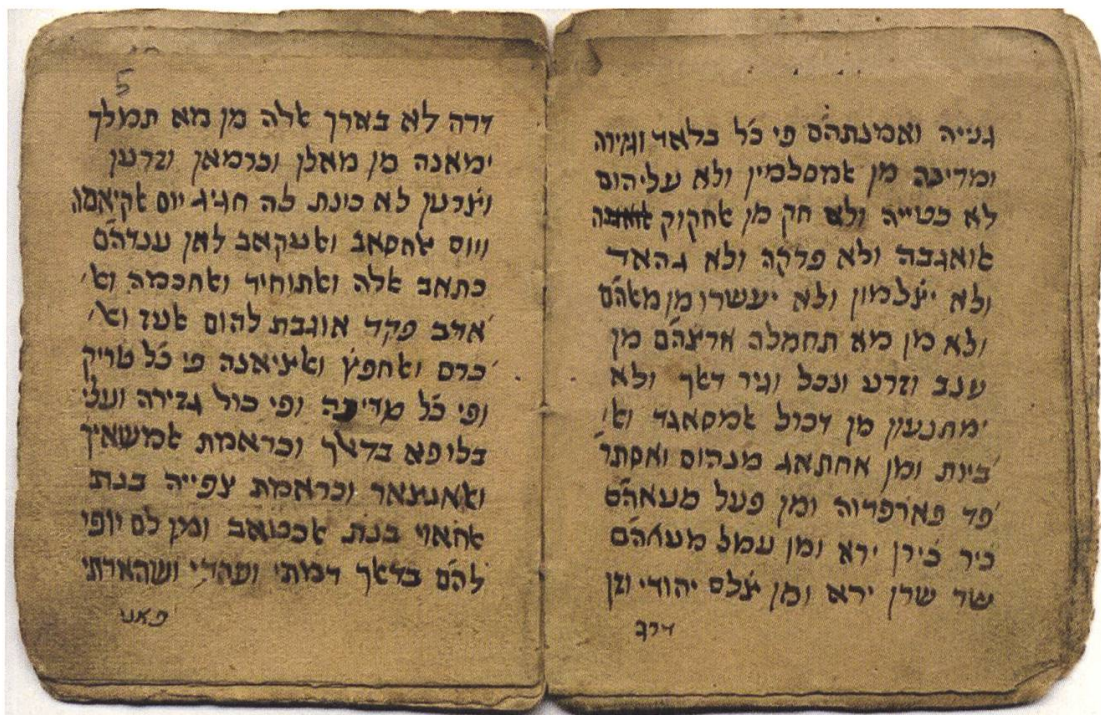 גנייה ואמנתהם פי כל בלאד וגזירה
ומדינה מן אמסלמין ולא עליהום
לא כטייה ולא חק מן אחקוק
אואגבה ולא פדקה ולא גהאד
ולא יצלמון ולא יעשרו מן מאהם
ולא מן מא תחמלה ארצהם מן
ענב וזרע ונכל וגיר דאך ולא
ימתנעון מן דכול אמסאגד וא׳
׳ביות ומן אחתאג מנהום ואסתר׳
׳פד פארפדוה ומן פעל מעאהם
כיר כירן ירא ומן עמל מעאהם
שר שרן ירא ומן צלם יהודי וזן
דרג
5
דרה לא בארך אלה מן מא תמלך
ימאנה מן מאלן וכרמאן וזרען
וצרען לא כונת לה חגיג יום אקיאמה
ויום אחסאב ואעקאב לאן ענדהם
כתאב אלה ואתוחיד ואחכמה וא׳
׳אדב פקד אוגבת להום אעז וא׳
׳כרם ואחפץ ואציאנה פי כל טריק
ופי כל מדינה ופי כול גזירה ועלי
בלופא בדאך וכראמת אמשאיך
ואאנצאר וכראמת צפייה בנת
אחאוי בנת אכטאב ומן לם יופי
להם בדאך דמתי ועהדי ושהארתי